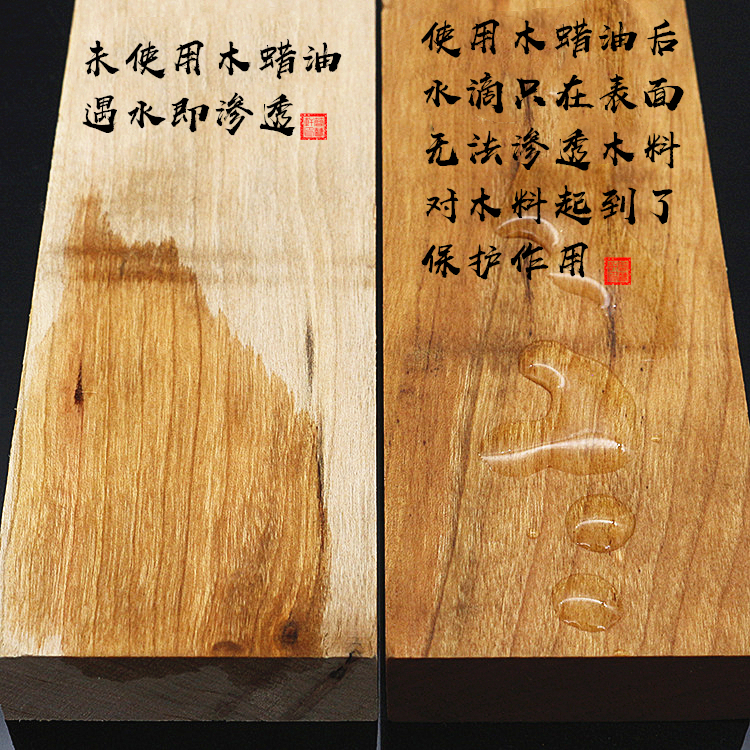 未使用木蜡油
遇水即渗透
使用木蜡油后
水滴只在表面
无法渗透木料
对木料起到了
保护作用